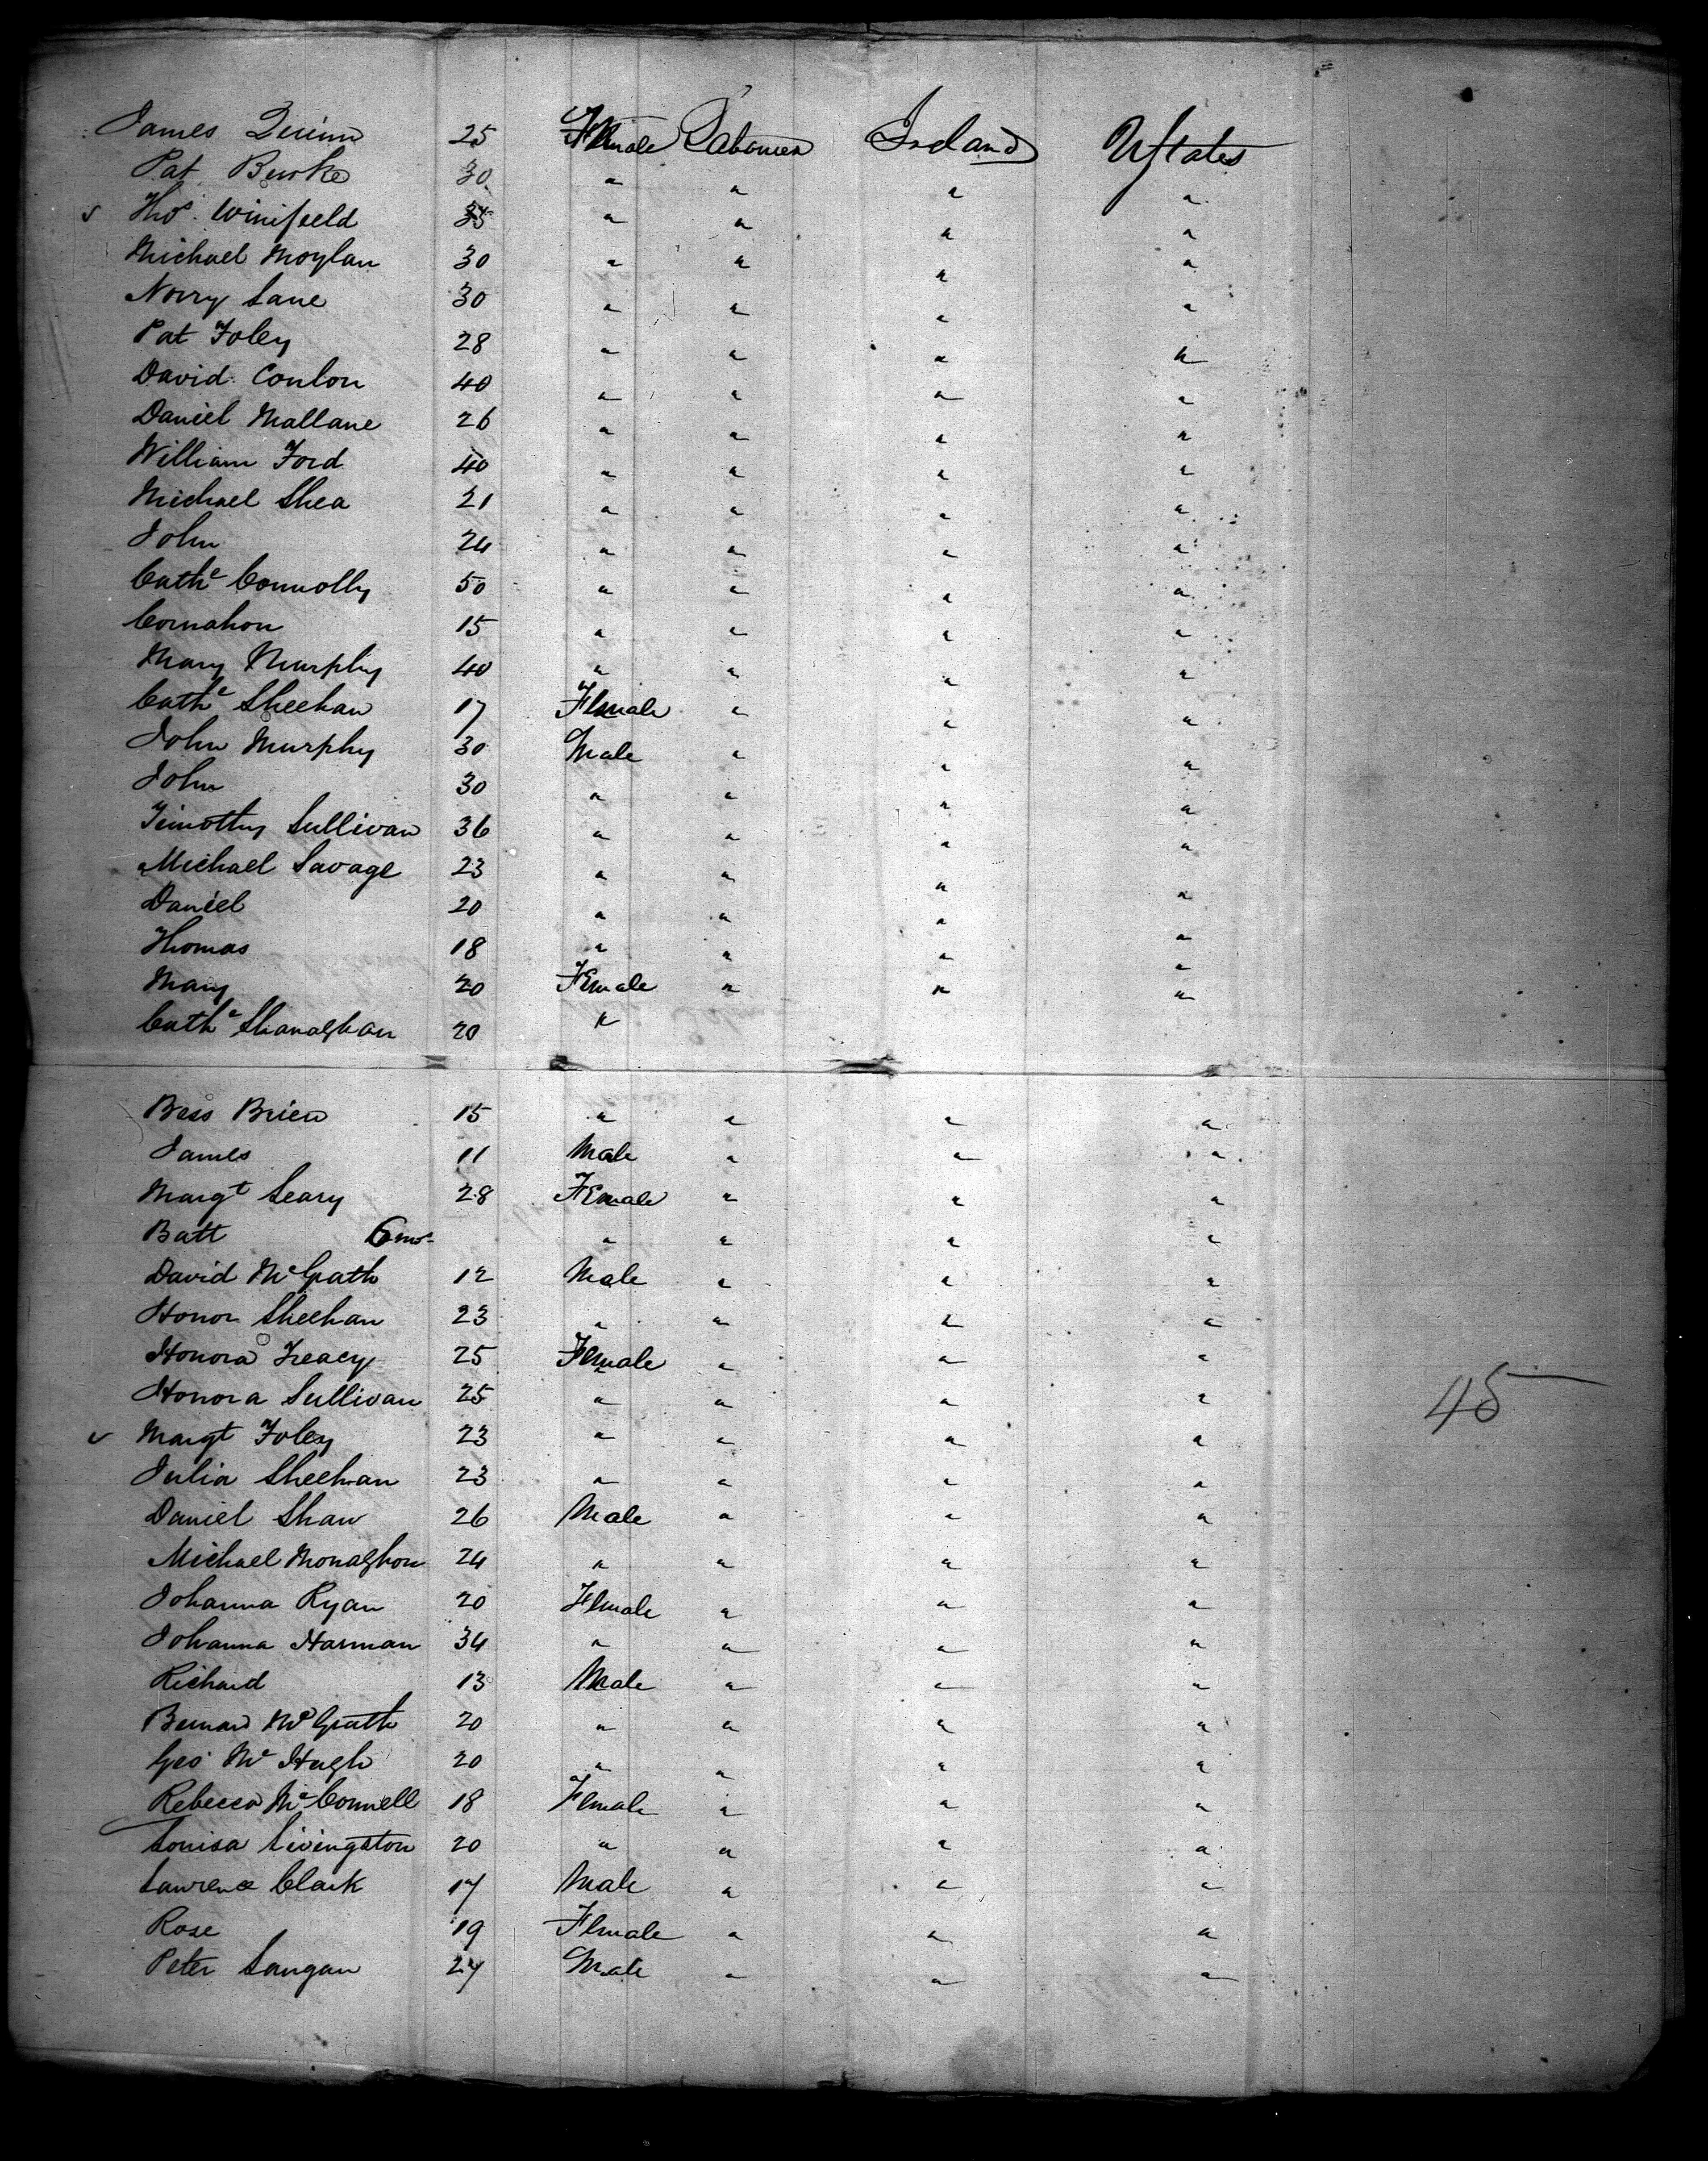 James Quinn 25 Female Labourer Ireland UStates
Pat Burke 30 " " " "
Thos. Winifield 35 " " " "
Michael Moylan 30 " " " "
Norry Lane 30 " " " "
Pat Foley 28 " " " "
David Conlon 40 " " " "
Daniel Mallane 26 " " " "
William Ford 40 " " " "
Michael Shea 21 " " " "
John 24 " " " "
Cathe Connolly 50 " " " "
Cornahon 15 " " " "
Mary Murphy 40 " " " "
Cathe Sheehan 17 Female " " "
John Murphy 30 Male " " "
John 30 " " " "
Timothy Sullivan 36 " " " "
Michael Savage 23 " " " "
Daniel 20 " " " "
Thomas 18 " " " "
Mary 20 Female " " "
Cathe Shanaghan 20 "
Bess Brien 15 " " " "
James 11 Male " " "
Margt Leary 28 Female " " "
Batt 6 mos " " " "
David McGrath 12 Male " " "
Honor Sheehan 23 " " " "
Honora Treacy 25 Female " " "
Honora Sullivan 25 " " " "
Margt Foley 23 " " " "
Julia Sheehan 23 " " " "
Daniel Shaw 26 Male " " "
Michael Monaghon 24 " " " "
Johanna Ryan 20 Female " " "
Johanna Harman 34 " " " "
Richard 13 Male " " "
Bernard McGrath 20 " " " "
Geo McHugh 20 " " " "
Rebecca McConnell 18 Female " " "
Louisa Livingston 20 " " " "
Lawrence Clark 17 Male " " "
Rose 19 Female " " "
Peter Langan 27 Male " " "
45